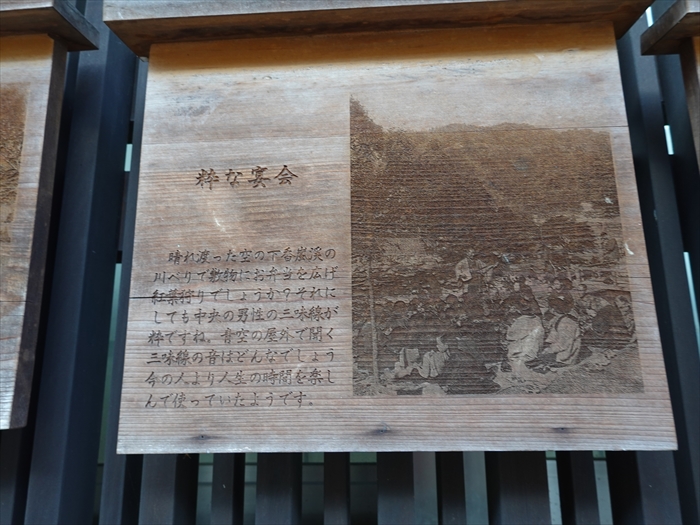 粋な宴会
晴れ渡った空の下香嵐渓の
川べりで敷物にお弁当を広げ
紅葉狩りでしょうか？それに
しても中央の男性の三味線が
粋ですね。青空の屋外で聞く
三味線の音はどんなでしょう
今の人より人生の時間を楽し
んで使っていたようです。